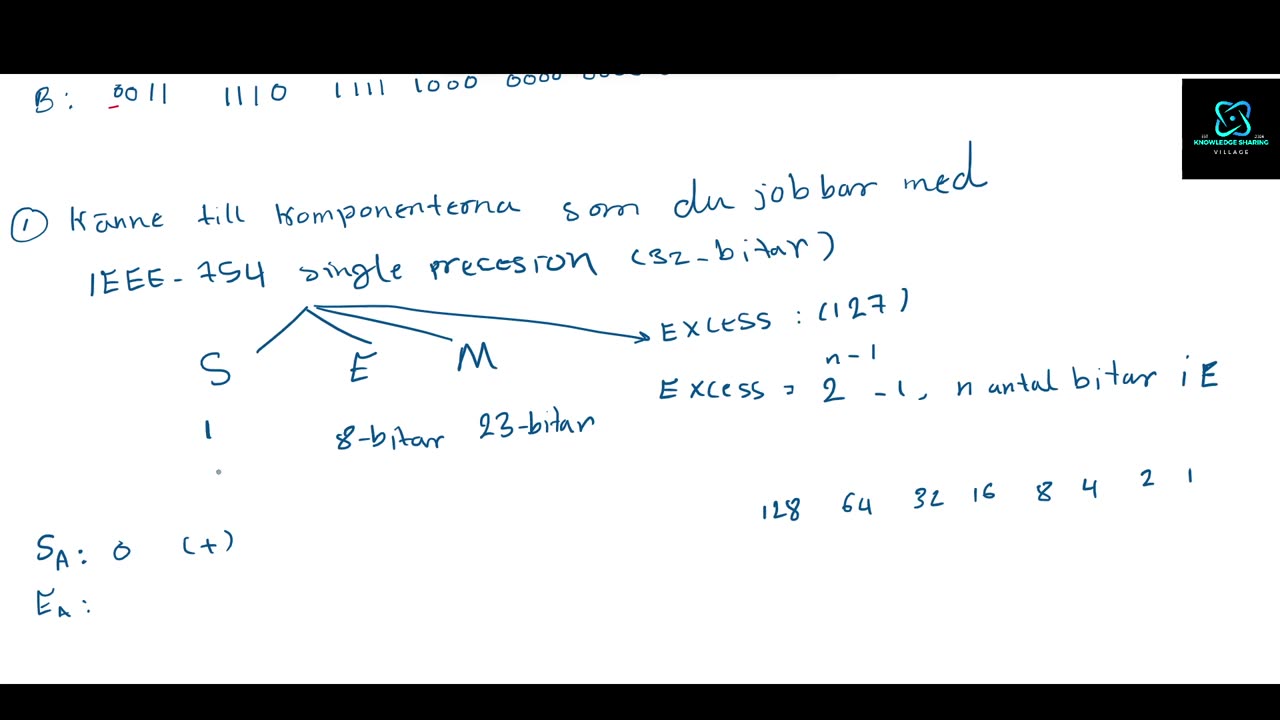 B: 0011 1110 1111 1000 0000
KNOWLEDGE SHARING
VILLAGE
① Känne till komponenterna som du jobbar med
IEEE-754 single precesion (32-bitar)
S E M
1 8-bitar 23-bitar
EXCESS : (127)
Excess = 2^(n-1) -1, n antal bitar i E
128 64 32 16 8 4 2 1
S_A: 0 (+)
E_A: